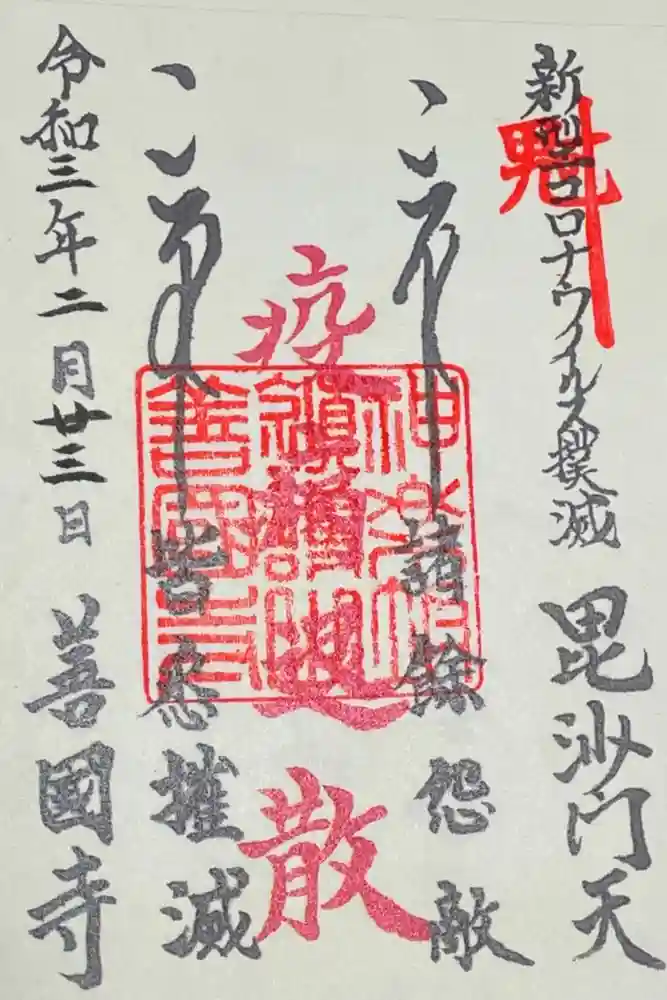 魁
新型コロナウイルス撲滅 毘沙門天
諸餘怨敵
疫 退散
神楽坂
鎮護山
善國寺
皆悉摧滅
令和三年二月廿三日 善國寺